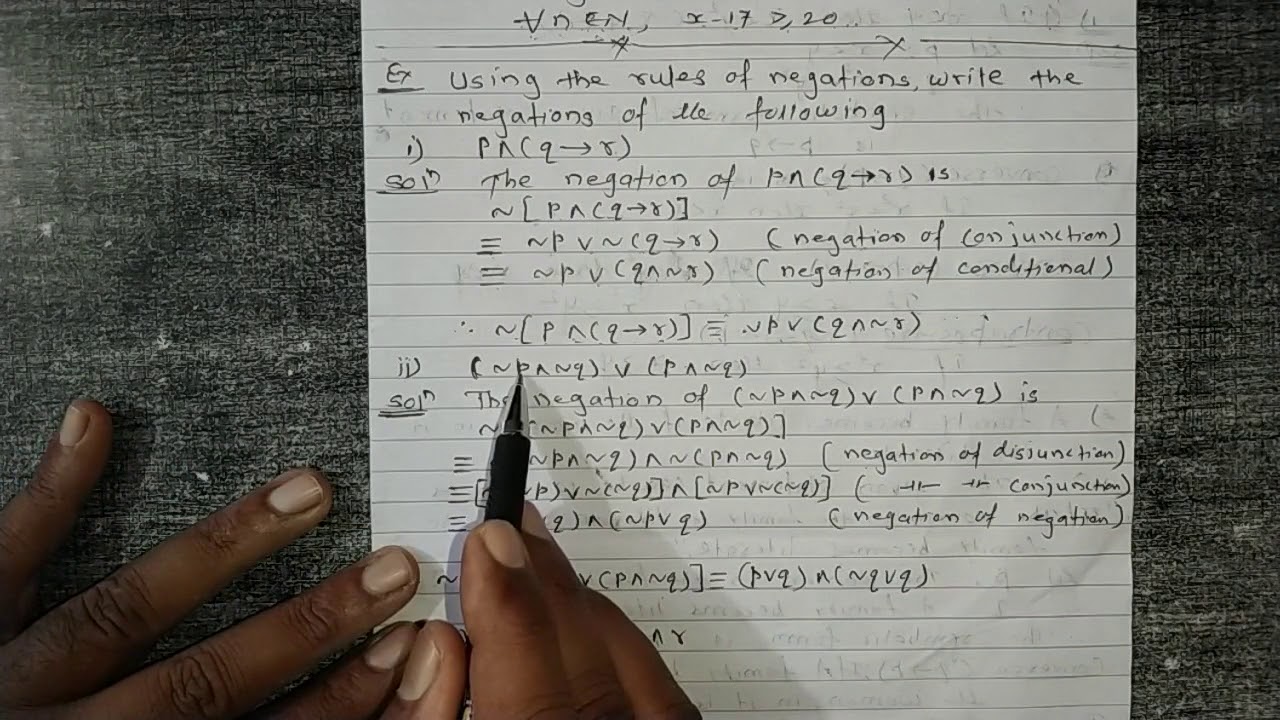 ∀n∈N, x-17 ≥ 20
Ex Using the rules of negations, write the
negations of the following
i) p∧(q→r)
Solⁿ The negation of p∧(q→r) is
~[p∧(q→r)]
≡ ~p∨~(q→r) (negation of conjunction)
≡ ~p∨(q∧~r) (negation of conditional)
∴ ~[p∧(q→r)] ≡ ~p∨(q∧~r)
ii) (~p∧~q) ∨ (p∧~q)
Solⁿ The negation of (~p∧~q)∨(p∧~q) is
~ ~p∧~q)∨(p∧~q)]
≡ ~p∧~q)∧~(p∧~q) (negation of disjunction)
≡[ p)∨~(~q)]∧[~p∨~(~q)] ( conjunction)
≡ q)∧(~p∨q) (negation of negation)
~ ∨(p∧~q)]≡(p∨q)∧(~q∨q)
∧r